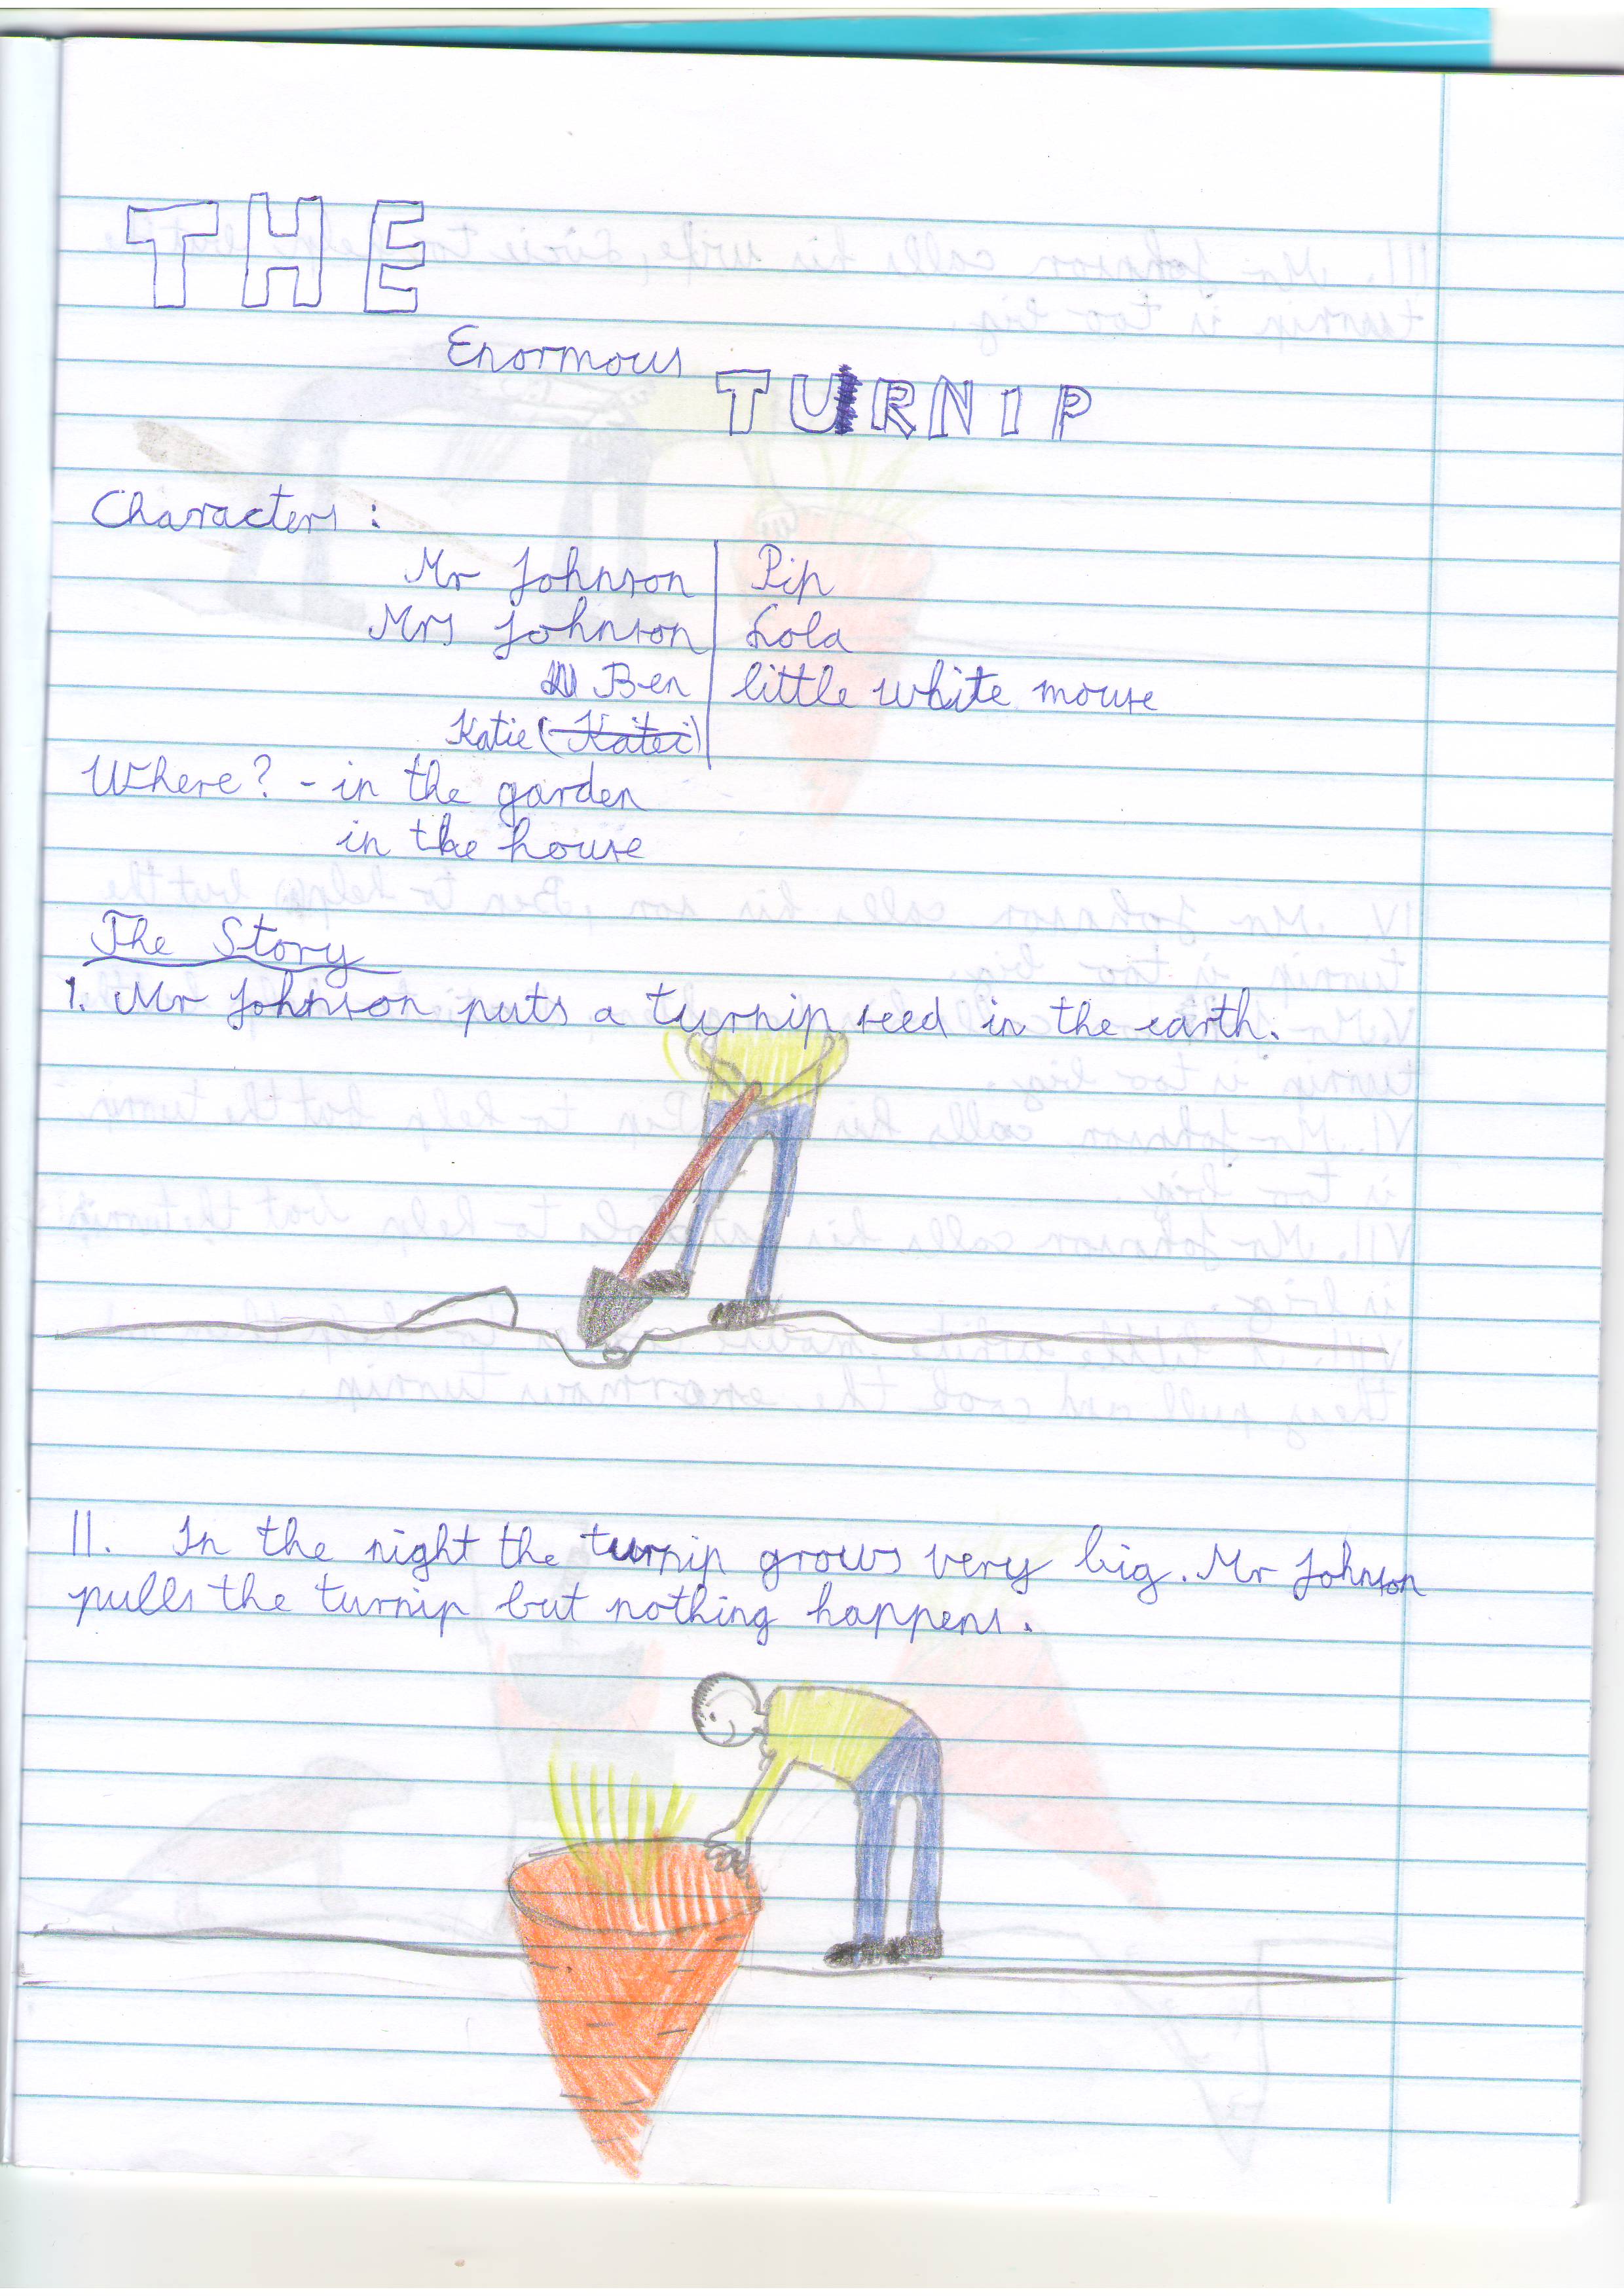 THE
Enormous
TURNIP
Characters :
Mr Johnson | Pip
Mrs Johnson | Lola
Ben | little white mouse
Katie (Katei)
Where? - in the garden
in the house
The Story
I. Mr Johnson puts a turnip seed in the earth.
II. In the night the turnip grows very big. Mr Johnson
pulls the turnip but nothing happens.